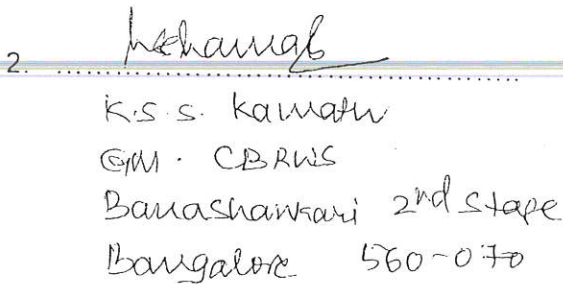 2. ....................
K.S.S. Kamath
GM. CBRWS
Banashankari 2nd Stage
Bangalore 560-070